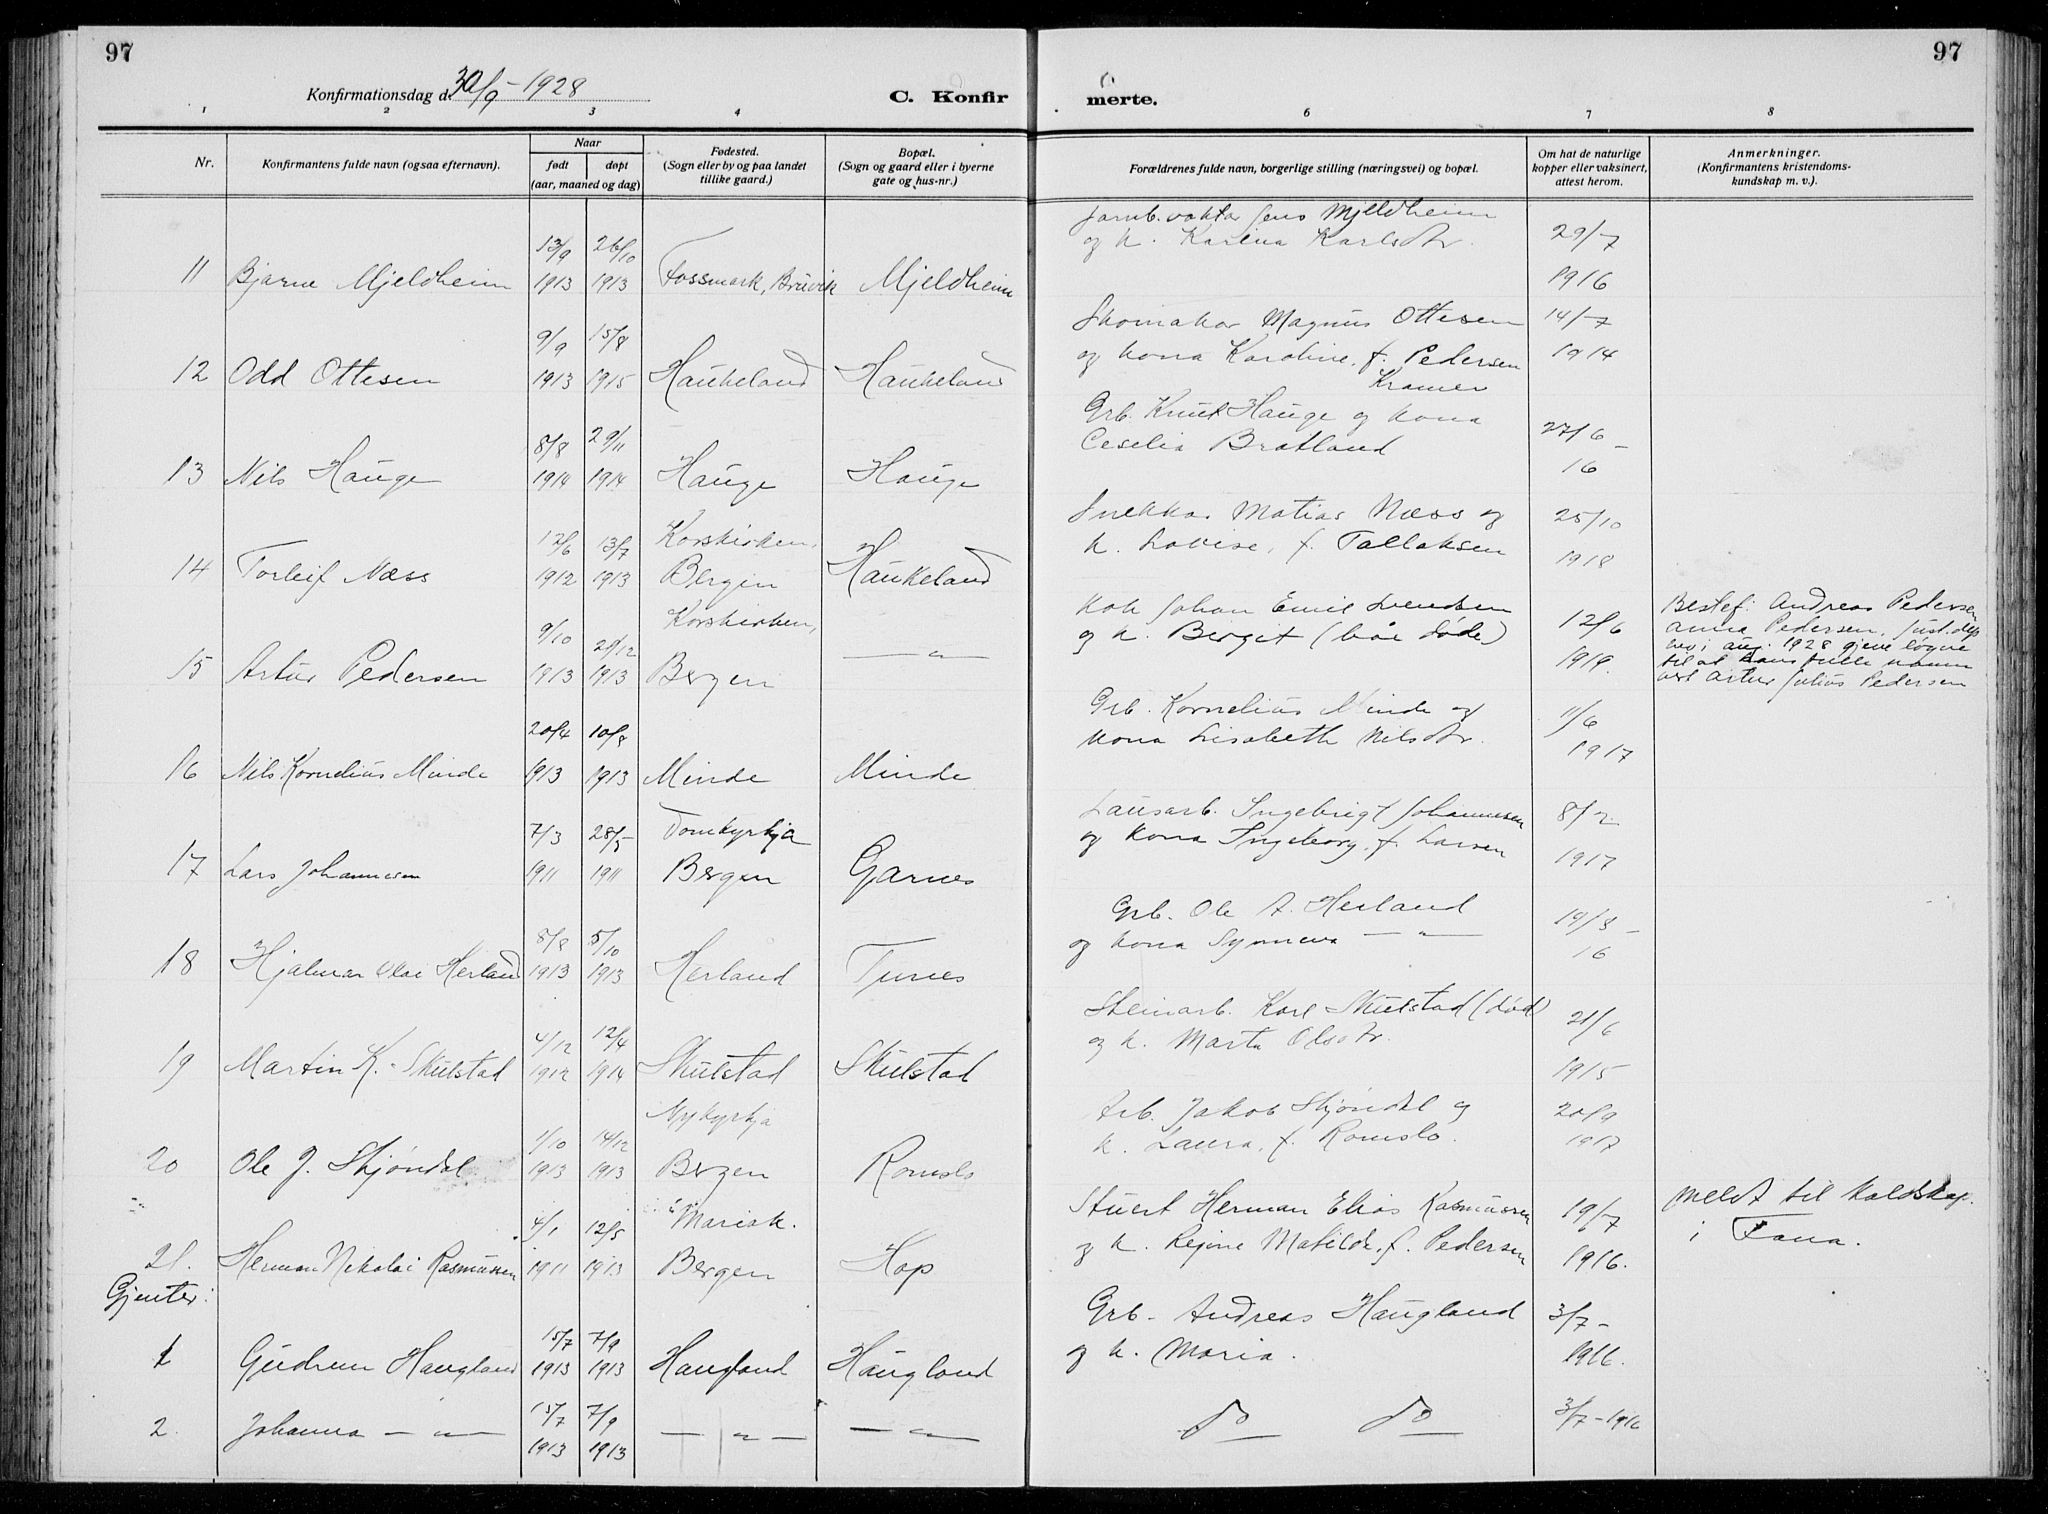 97
97
Konfirmationsdag d. 30/9 - 1928
C. Konfir
merte.
1 2 3 4 6 7 8
Nr.
Konfirmantens fulde navn (ogsaa efternavn).
Naar
født
døpt
(aar, maaned og dag)
Fødested.
(Sogn eller by og paa landet
tillike gaard.)
Bopæl.
(Sogn og gaard eller i byerne
gate og hus-nr.)
Forældrenes fulde navn, borgerlige stilling (næringsvei) og bopæl.
Om hat de naturlige
kopper eller vaksinert,
attest herom.
Anmerkninger.
(Konfirmantens kristendoms-
kundskap m. v.).
Jarnb.vaktar Jens Mjeldheim
13/9 26/10 og k. Karina Karlsdtr. 29/7
11 Bjarne Mjeldheim 1913 1913 Fossmark, Bruvik Mjeldheim 1916
9/9 15/8 Skomakar Magnus Ottesen 14/7
12 Odd Ottesen 1913 1915 Haukeland Haukeland og kona Karoline, f. Pedersen 1914
Kramer
8/8 29/11 Grb. Knut Hauge og kona 27/6 –
13 Nils Hauge 1914 1914 Hauge Hauge Ceselia Bratland 16
12/6 13/7 Korskirken, Snekkar Matias Næss og 25/10
14 Torleif Næss 1912 1913 Bergen Haukeland k. Lovise, f. Tallaksen 1918
9/10 21/12 Korskirken, Kok Johan Emil Svendsen 12/6
15 Artur Pedersen 1913 1913 Bergen — „ — og k. Berget (båe døde) 1919.
Bestef: Andreas Pedersen
Anna Pedersen. Just.dep
hev i aug. 1928 gjeve løyve
til at hans fulle namn
vert Artur Julius Pedersen
20/4 10/8 Grb. Kornelius Minde og 11/6
16 Nils Kornelius Minde 1913 1913 Minde Minde kona Lisabeth Nilsdtr. 1917
7/3 28/5 Domkyrkja Lausarb. Ingebrigt Johannesen 8/2
17 Lars Johannesen 1911 1911 Bergen Garnes og kona Ingeborg, f. Larsen 1917
8/8 5/10 Grb. Ole A. Herland 19/8 –
18 Hjalmar Olai Herland 1913 1913 Herland Tunes og kona Synneva — „ — 16
4/12 12/4 Steinarb. Karl Skulstad (død) 21/6
19 Martin K. Skulstad 1912 1914 Skulstad Skulstad og k. Marta Olsdtr. 1915
1/10 14/12 Nykyrkja Arb. Jakob Skjøndal og 20/9
20 Ole J. Skjøndal 1913 1913 Bergen Romslo k. Laura, f. Romslo. 1917
4/1 12/5 Mariak. Stuert Herman Elias Rasmussen 19/7 meldt til
21. Herman Nikolai Rasmussen 1911 1913 Bergen Hop og k. Rejine Matilde, f. Pedersen 1916. i Fana.
Gjenter:
15/7 7/9 Grb. Andreas Haugland 3/7 –
1 Gudrun Haugland 1913 1913 Haugland Haugland og k. Maria. 1916.
15/7 7/9
2. Johanna — „ — 1913 1913 — „ — — „ — do do 3/7 – 1916